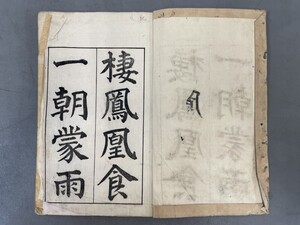 棲鳳凰食
一朝蒙雨